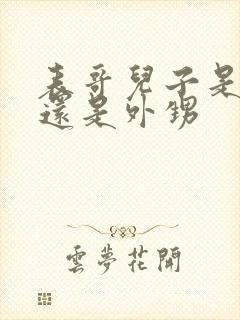 表哥兒子是
還是外甥
雲夢花開